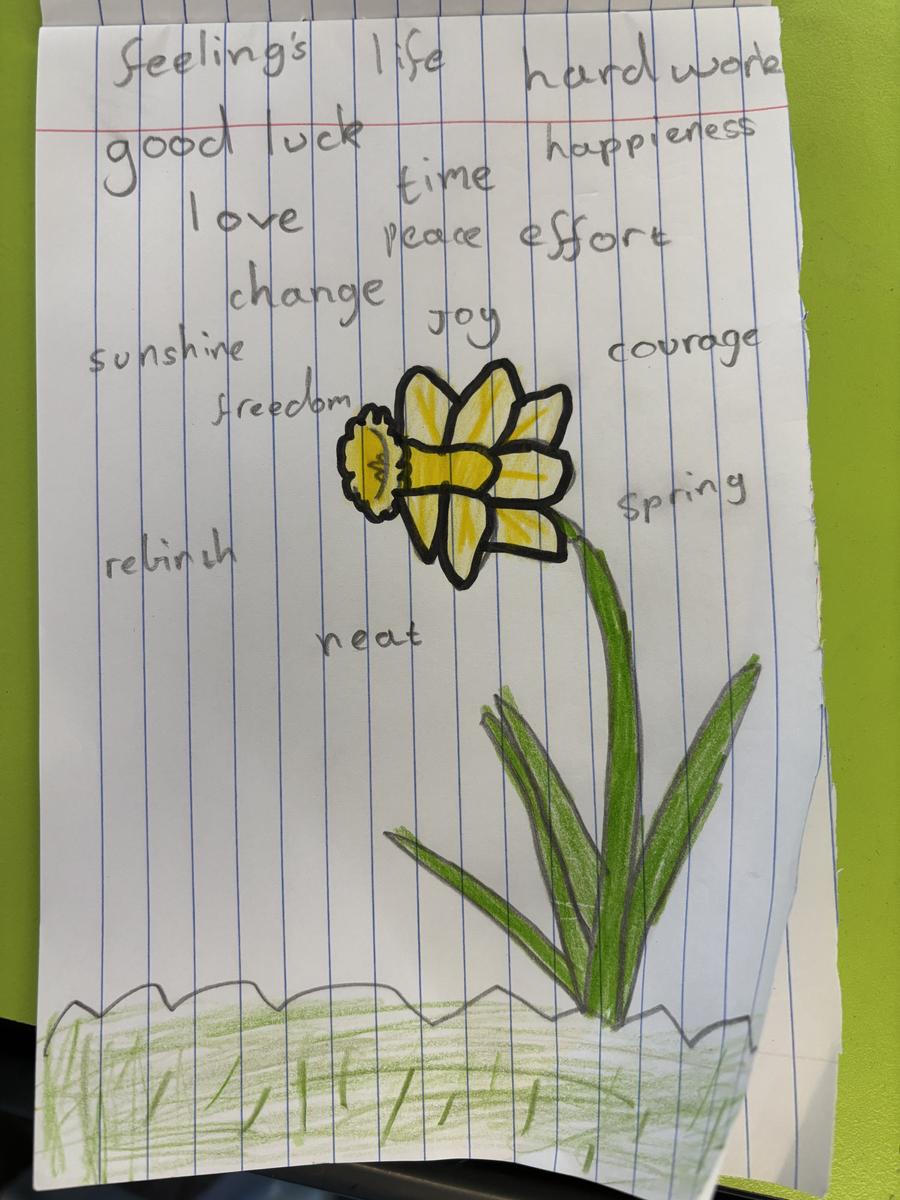 feeling's life hard work
good luck happieness
time
love peace effort
change
Joy
sunshine courage
freedom
spring
rebirth
neat